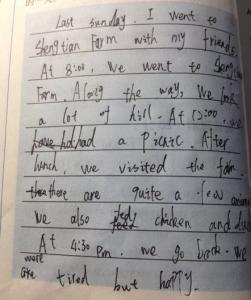 Last sunday. I went to
Shengtian Farm with my friends
At 8:00, We went to Shengtian
Farm. Along the way, We
a lot of hill. At 12:00
had a picnic. After
lunch, we visited the farm.
there are quite a few
We also chicken and
At 4:30 pm. we go back. We
were
tired but happy.